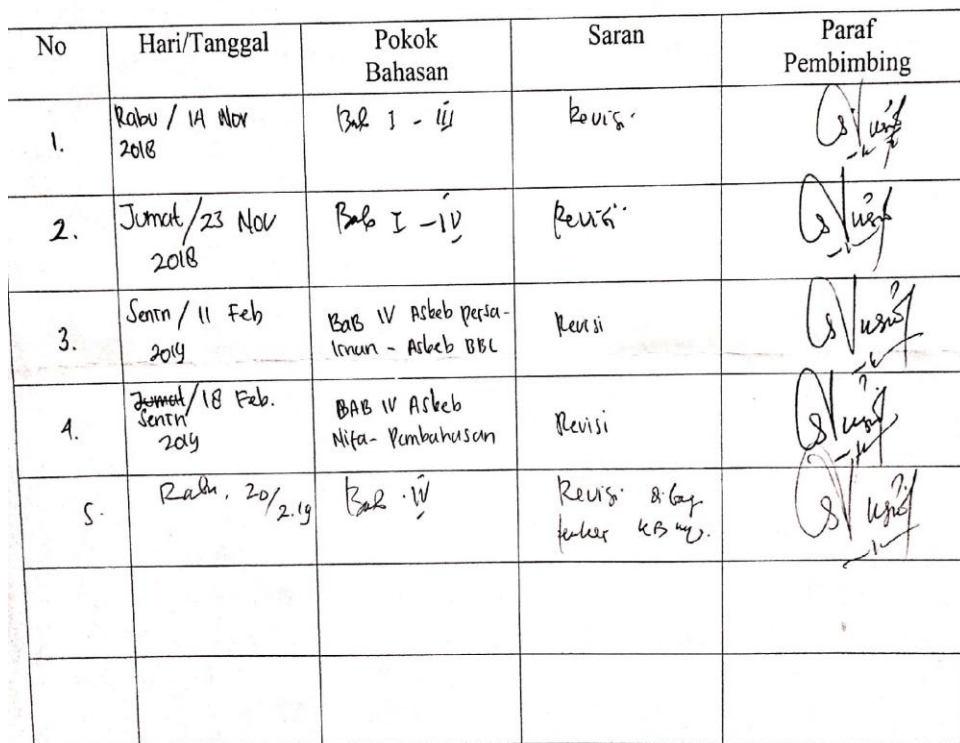 No Hari/Tanggal Pokok Bahasan Saran Paraf Pembimbing
1. Rabu / 14 Nov 2018 Bab I - III Revisi
2. Jumat / 23 Nov 2018 Bab I - IV Revisi
3. Senin / 11 Feb 2019 BAB IV Askeb persa-linan - Askeb BBL Revisi
4. Jumat Senin / 18 Feb. 2019 BAB IV Askeb Nifa- Pembahasan Revisi
5. Rabu, 20/2.19 Bab IV Revisi KB